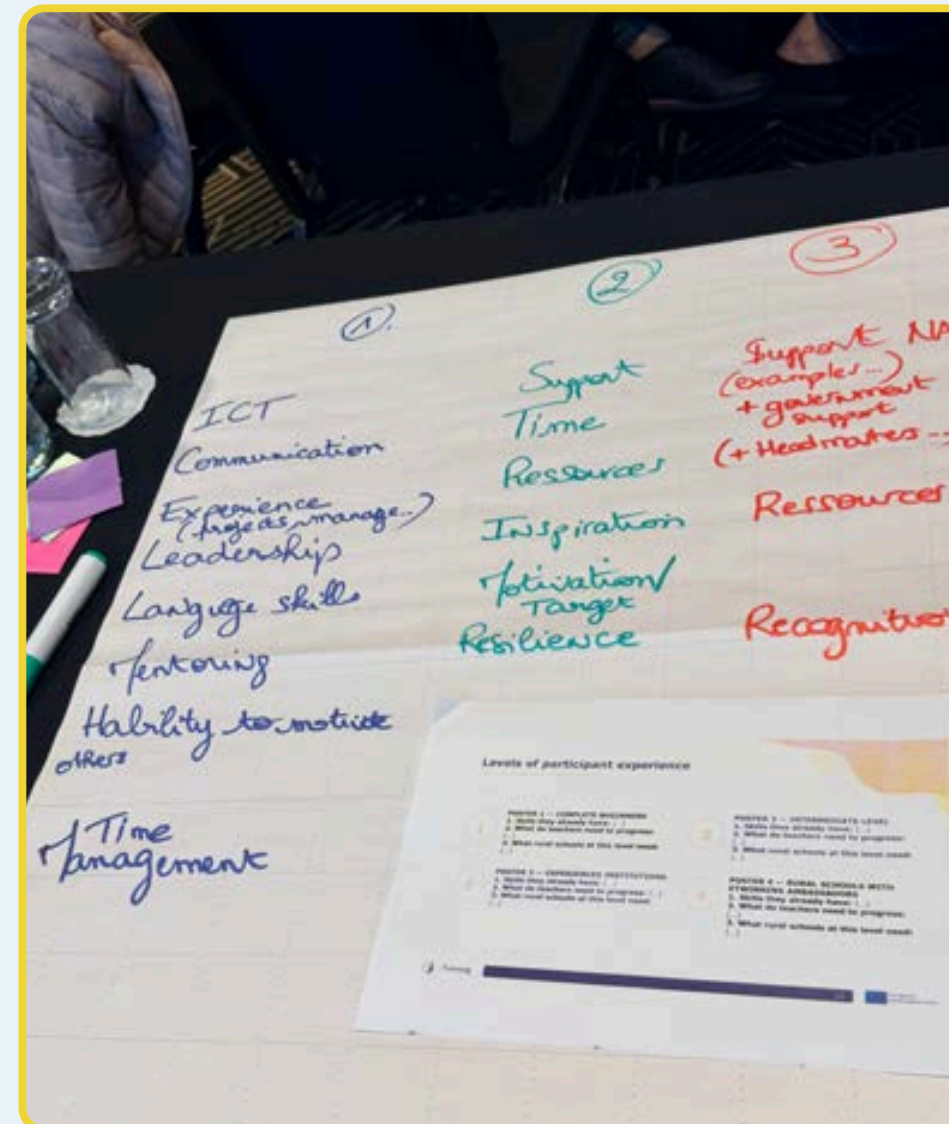 1.
ICT
Communication
Experience
(Projects, manage..)
Leadership
Language skills
Mentoring
Hability to motivate
others
Time
Management
2
Support
Time
Ressources
Inspiration
Motivation/
Target
Resilience
3
Support NA
(examples...)
+ government
support
(+ Headmasters...
Ressources
Recognition
Levels of participant experience
POSTER 1 – COMPLETE BEGINNERS
1. Skills they already have: (..)
2. What do teachers need to progress:
(..)
3. What rural schools at this level need:
(..)
1. Skills they already have: (..)
2. What do teachers need to progress:
(..)
3. What rural schools at this level need:
(..)
POSTER 3 – EXPERIENCED INSTITUTIONS
1. Skills they already have: (..)
2. What do teachers need to progress: (..)
3. What rural schools at this level need:
POSTER 4 – RURAL SCHOOLS WITH
ETWINNING AMBASSADORS
1. Skills they already have: (..)
2. What do teachers need to progress:
(..)
3. What rural schools at this level need:
(..)